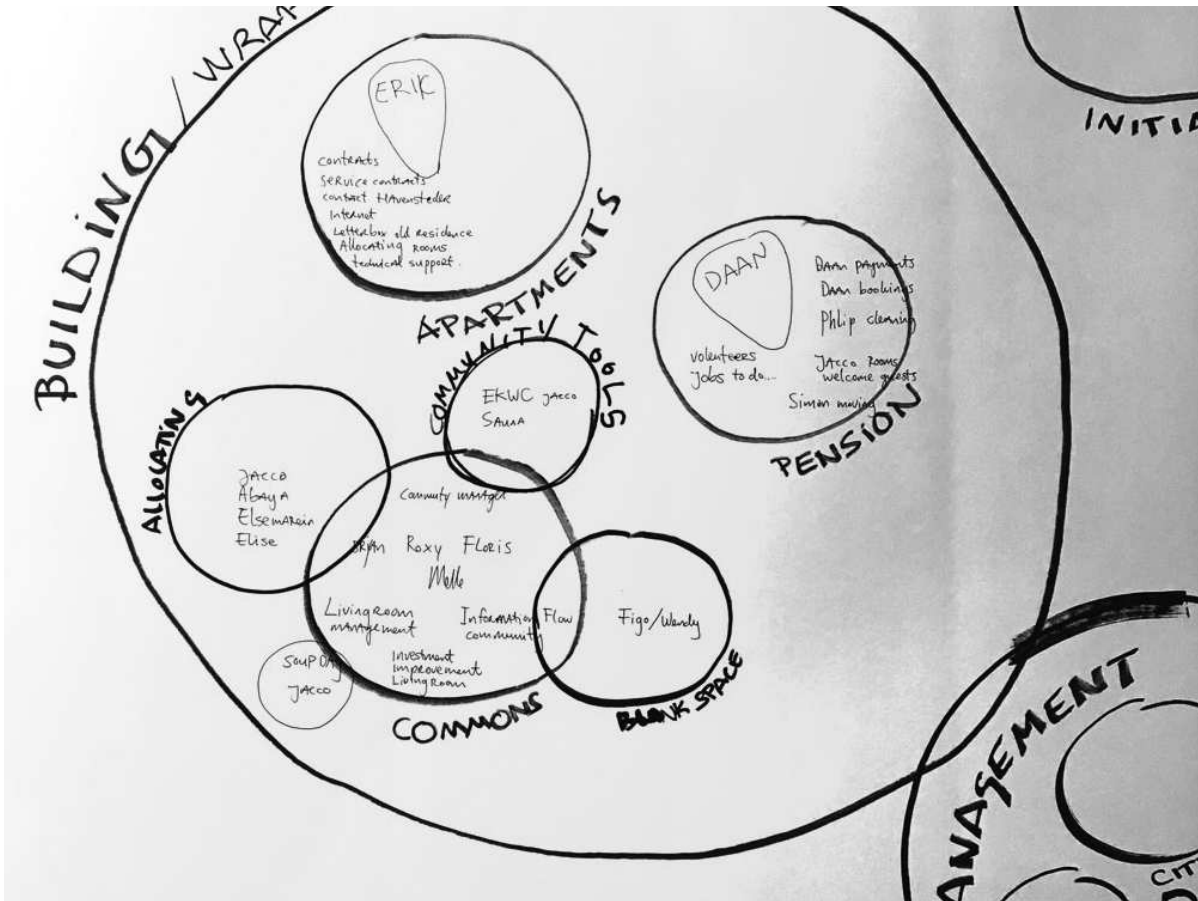 BUILDING/WRAP
ERIK
contracts
service contracts
contact Havensteder
Internet
Letterbox old residence
Allocating rooms
technical support.
APARTMENTS
INITIA
DAAN
Daan payments
Daan bookings
Phlip cleaning
volenteers
Jobs to do...
Jacco Rooms
welcome guests
Simon moving
PENSION
COMMUNITY TOOLS
EKWC Jacco
Sauna
ALLOCATING
JACCO
Abaya
Elsemarein
Elise
Commuty manager
BRYAN Roxy Floris
Melle
Livingroom
management
Information Flow
community
Investment
Improvement
Livingroom
COMMONS
SOUP DAY
JACCO
Figo/Wendy
BLANK SPACE
ANAGEMENT
CIT